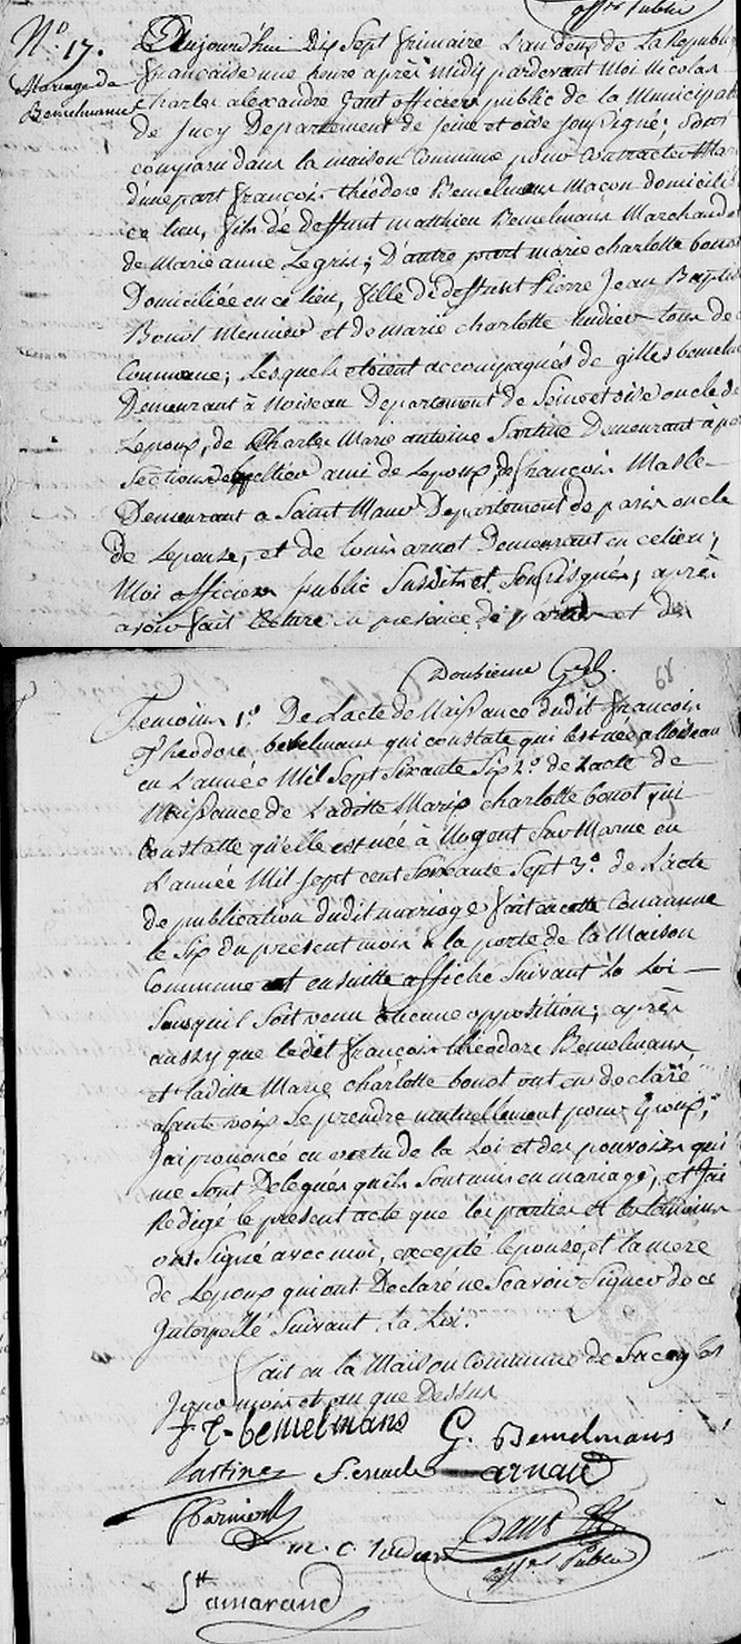 offer public
N.° 17.
Mariage de
Bemelmans
Aujourd'hui Dix Sept frimaire L'an deux de La Republi
francaise une heure après midy pardevant Moi Nicolas
Charles alexandre Gant officier public de la Municipal
de Sucy Departement de Seine et oise soussigné; sont
comparu dans la maison Commune pour Contracter Ma
d'une part françois théodore Bemelmans Macon domicilié
ce lieu, fils de deffunt matthieu Bemelmans Marchand
de Marie anne Legris; D'autre part marie charlotte bonot
Domiciliée en ce lieu, fille de deffunt Pierre Jean Baptis
Bonot Meunier et de marie charlotte ludier tous de
Commune; Lesquels etoient accompagnés de gilles bemelm
Demeurant à Noiseau Departement de Seine et oise oncle de
Lepoux, de Charles Marie antoine Sartine Demeurant à pa
Section ami de Lepoux, de françois Masle
Demeurant a Saint Maur Departement de paris oncle
de Lepouse, et de louis arnot Demeurant en ce lieu;
Moi officier public Susdit et Soussigné, après
avoir fait lecture en presence de parties et des
Douxieme
68
Temoins 1.° De Lacte de Naissance dudit francois
Theodore bebelmans qui constate qui lest né a Noiseau
en L'année Mil Sept Soixante Six 2.° de Lacte de
Naissance de Laditte Marie charlotte bonot qui
Constatte qu'elle est née à Nogent Sur Marne en
L'année Mil Sept cent Soixante Sept 3.° de L'acte
de publication dudit mariage fait en cette Commune
le Six du present mois a la porte de la Maison
Commune et ensuitte affiché Suivant la Loi
Sans qu'il Soit venu aucune opposition; après
aussy que ledit françois théodore Bemelmans
et laditte Marie charlotte bonot ont eu declaré
a haute voix Se prendre mutuellement pour Epoux,
J'ai prononcé en vertu de la Loi et des pouvoirs qui
me Sont Delegués qu'ils Sont unis en mariage, et J'ai
Redigé le present acte que les parties et les temoins
ont Signé avec moi, excepté lepouse, et la mere
de Lepoux qui ont Declaré ne Scavoir Signer de ce
Interpellé Suivant La Loi.
fait en la Maison Commune de Sucy les
Jour mois et an que Dessus
f. T. bemelmans G. Bemelmans
Sartine arnaud
Gant
m. c. ludier
offer Public
St amarand